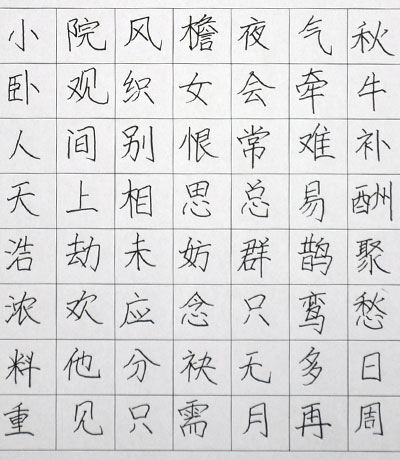 小院风檐夜气秋
卧观织女会牵牛
人间别恨常难补
天上相思总易酬
浩劫未妨群鹊聚
浓欢应念只鸾愁
料他分袂无多日
重见只需月再周